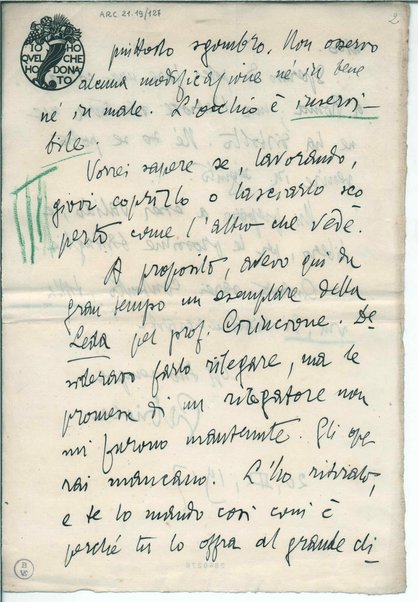 ARC 21.19/127
2
IO HO
QVEL CHE
HO DONA
TO
piuttosto sgombro. Non osservo
alcuna modificazione né in bene
né in male. L'occhio è inservi-
bile.
Vorrei sapere se, lavorando,
giovi coprirlo o lasciarlo sco
perto come l'altro che vede.
A proposito, avevo qui da
gran tempo un esemplare della
Leda pel prof. Cirincione. De
sideravo farlo rilegare, ma le
promesse di un rilegatore non
mi furono mantenute. Gli ope
rai mancano. L'ho ritirato,
e te lo mando così com'è
perché tu lo offra al grande di